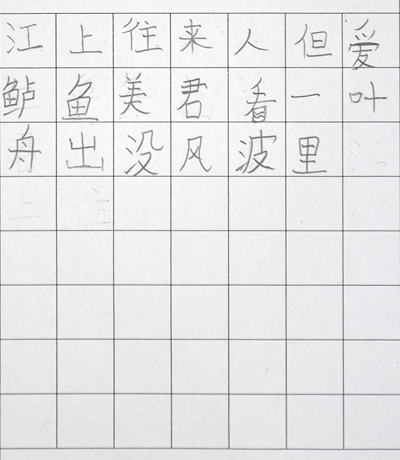 江上往来人但爱
鲈鱼美君看一叶
舟出没风波里江
上往